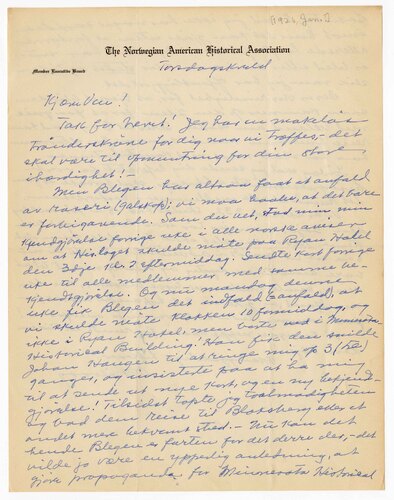 [1926, Jan.]
The Norwegian American Historical Association
Member Executive Board
Torsdagskveld
Kjære Ven!
Tak for brevet! Jeg har en makeløs
trønderskrøne for dig naar vi træffes, — det
skal være til opmuntring for din store
ibærdighet! —
Men Blegen har altsaa faat et anfald
av raseri (galskap); vi maa haabe, at det bare
er forbigaaende. Som du vet, stod min
kundgjørelse forrige uke i alle norske aviser,
om at Hirlaget skulde møte paa Ryan Hotel
den 3dje kl. 2 eftermiddag. Sendte kort forrige
uke til alle medlemmer med samme be-
kjendtgjørelse. Og nu mandag denne
uke fik Blegen det indfald (anfald), at
vi skulde møte klokken 10 formiddag, og
ikke i Ryan Hotel, men borte ved i Minnesota
Historical Building! Han fik den snilde
Johan Hansen til at ringe mig op 3 (tre)
ganger, og insisterte paa at ha mig
til at sende ut nye kort, og en ny bekjend-
gjørelse! Tilsidst tapte jeg taalmodigheten
og bad dem reise til Bloksberg eller et
andet mer bekvemt sted. — Nu kan det
hende Blegen er farten for det derre der, — det
vilde jo være en ypperlig anledning, at
gjøre propaganda for Minnesota Historical